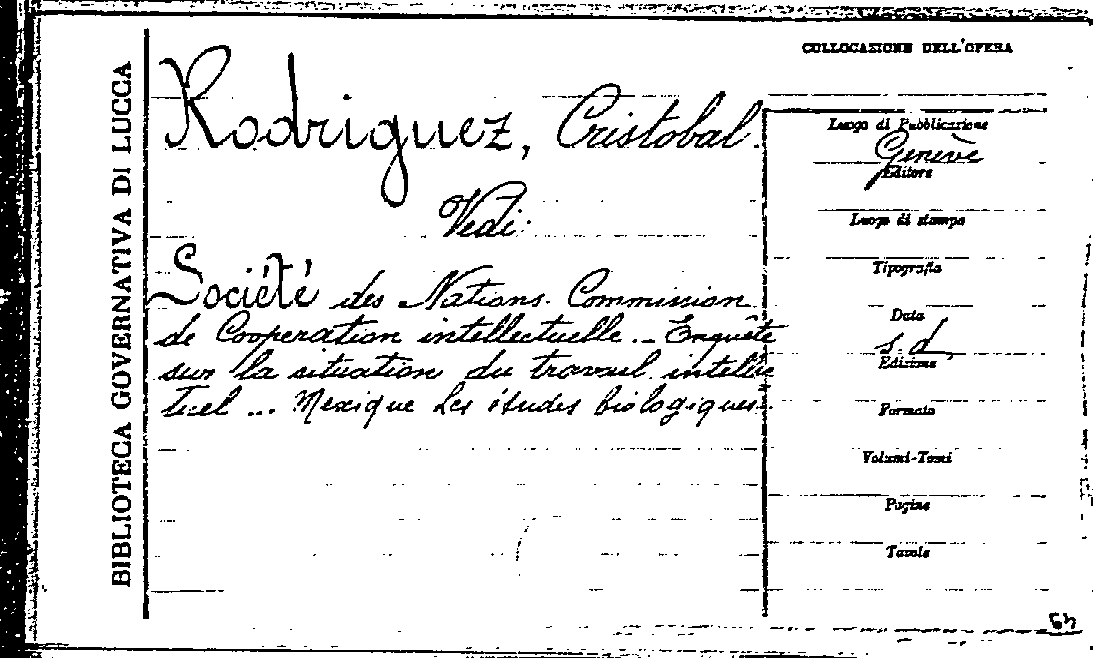 BIBLIOTECA GOVERNATIVA DI LUCCA
Rodriguez, Cristobal.
Vedi:
Société des Nations. Commission
de Cooperation intellectuelle. - Enquête
sur la situation du travail intellec
tuel ... Mexique Les études biologiques.
COLLOCAZIONE DELL'OPERA
Luogo di Pubblicazione
Genève
Editore
Luogo di stampa
Tipografia
Data
s.d.
Edizione
Formato
Volumi-Tomi
Pagine
Tavole